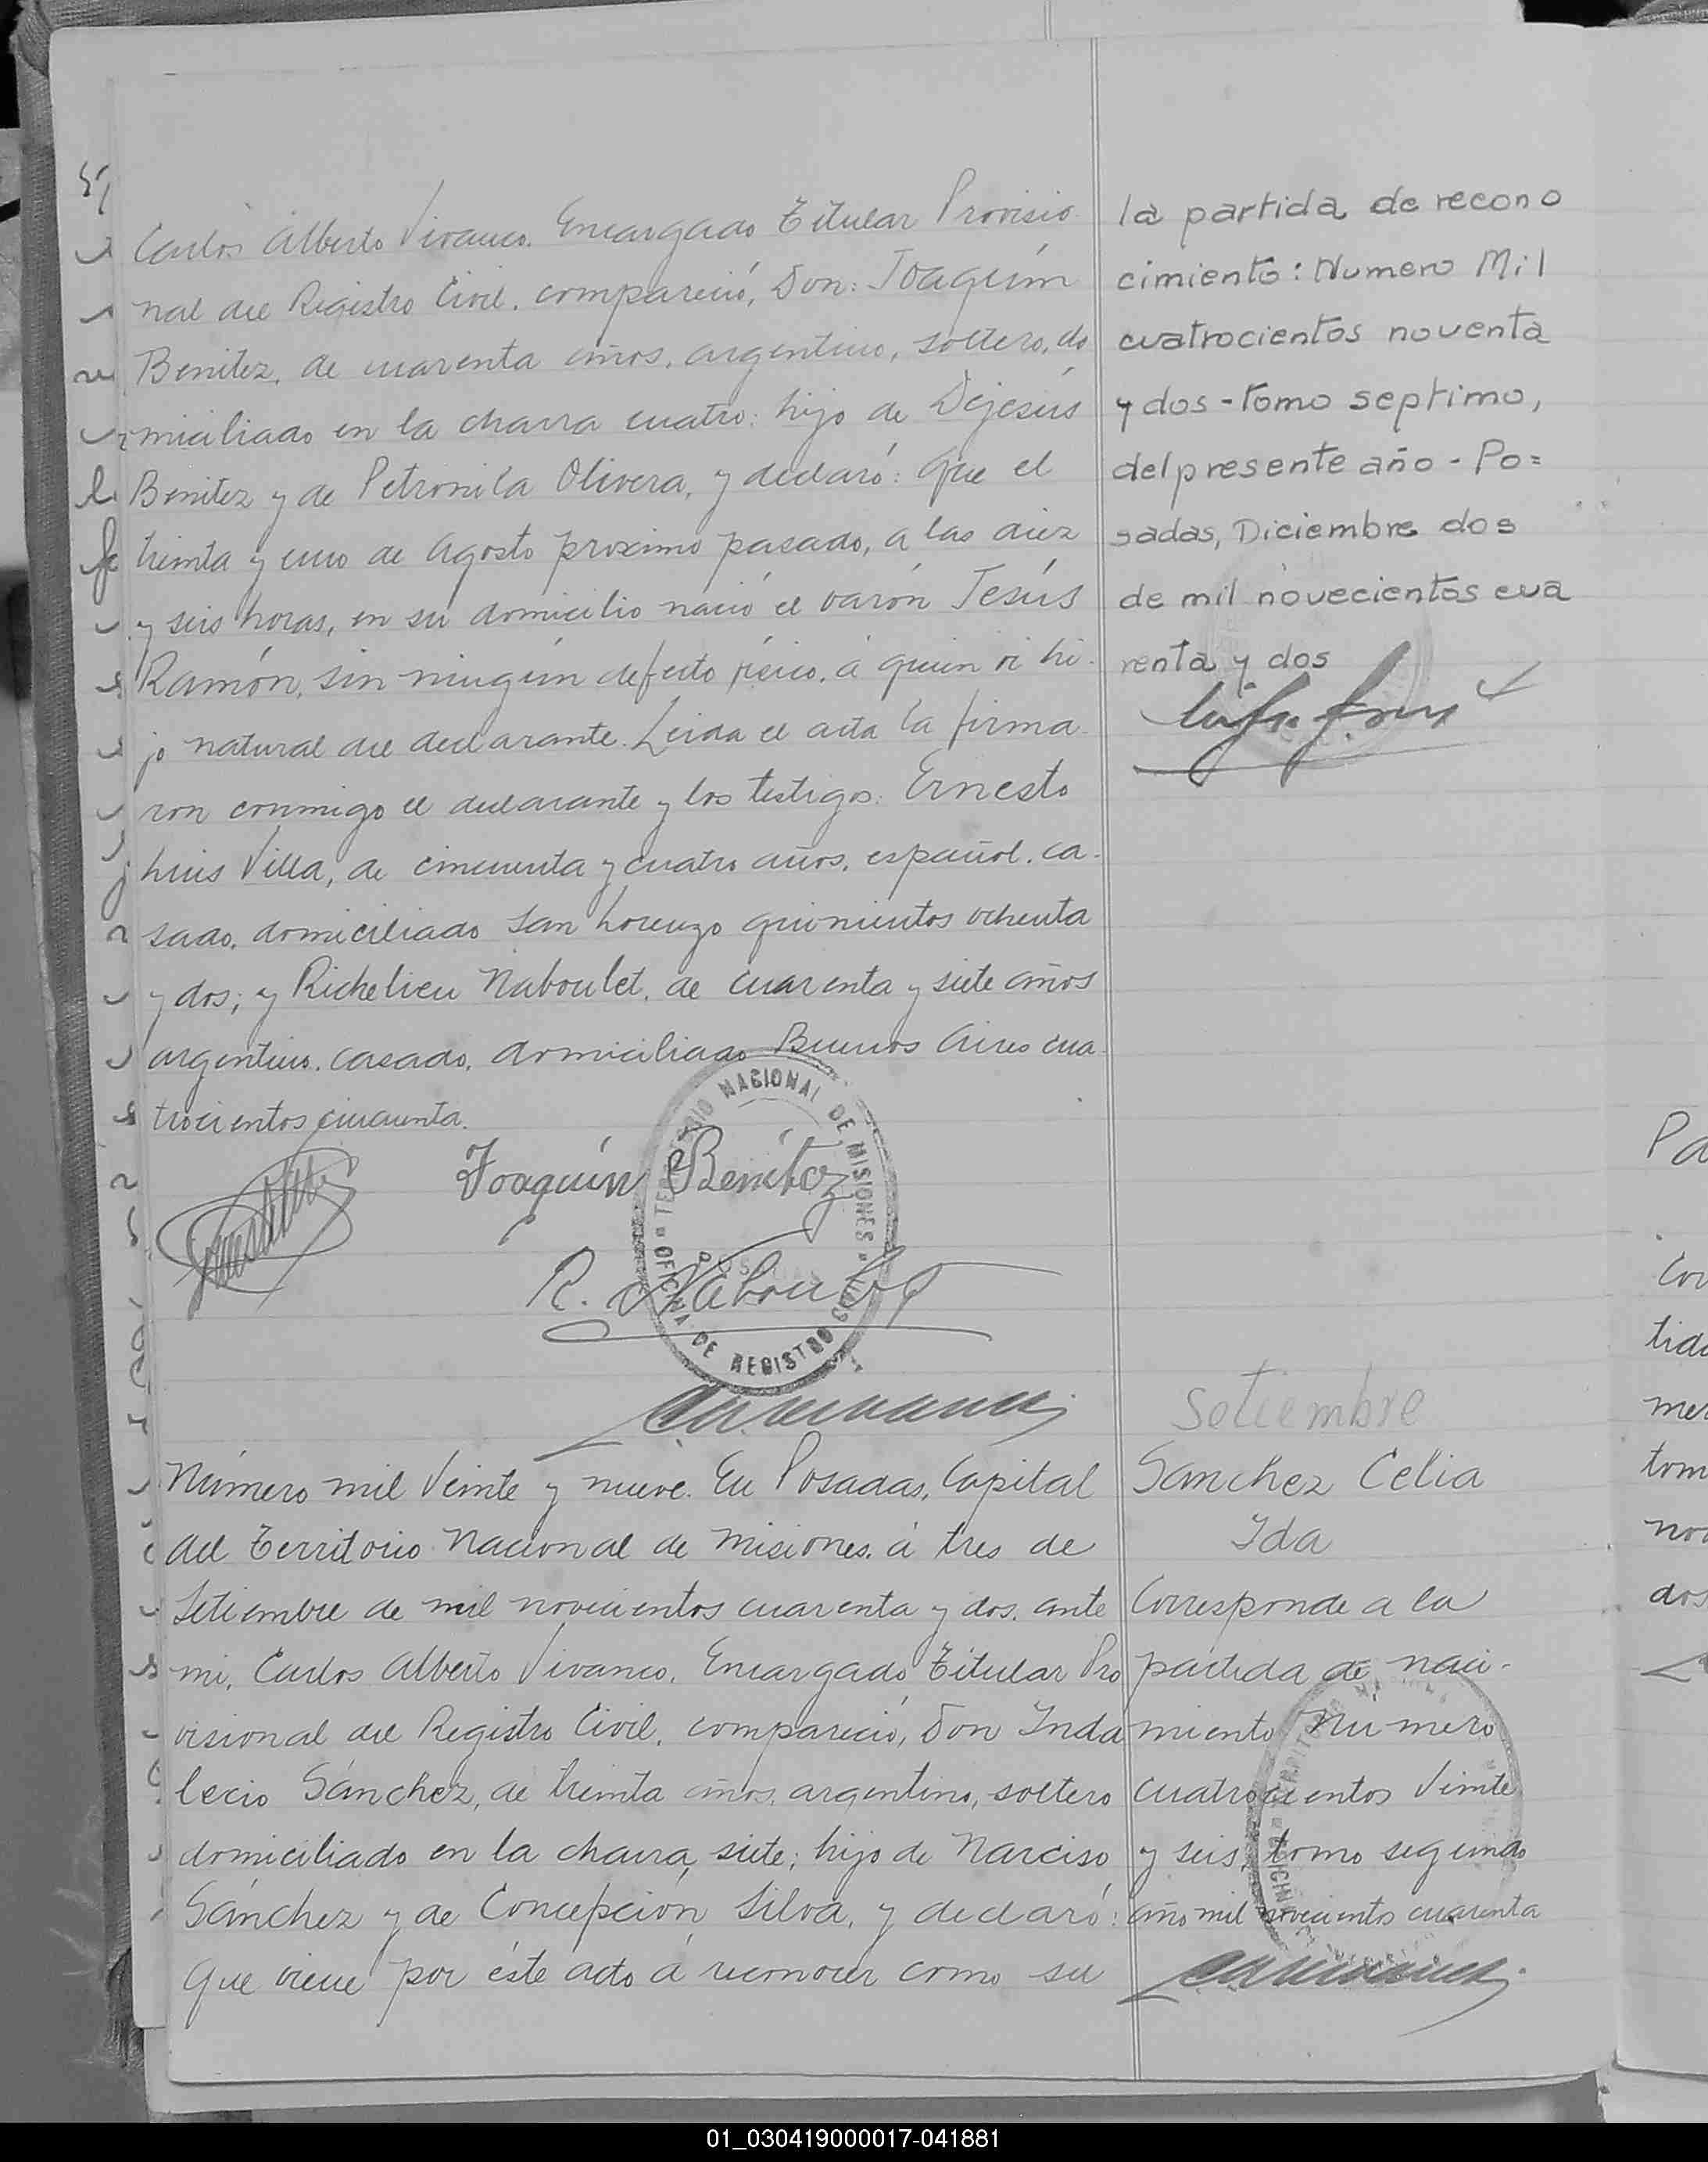 Carlos Alberto Vivanco. Encargado Titular Provisio
nal del Registro Civil. compareció, Don: Joaquín
Benitez, de cuarenta años, argentino, soltero, do
miciliado en la chacra cuatro: hijo de Dejesús
Benitez y de Petronila Olivera, y declaró: Que el
treinta y uno de Agosto proximo pasado, a las diez
y seis horas, en su domicilio nació el varón Jesús
Ramón, sin ningún defecto físico, a quien vi hi-
jo natural del declarante. Leida el acta la firma-
ron conmigo el declarante y los testigos: Ernesto
Luis Villa, de cincuenta y cuatro años, español, ca-
sado, domiciliado San Lorenzo quinientos ochenta
y dos; y Richelieu Naboulet, de cuarenta y siete años
argentino, casado, domiciliado Buenos Aires cua-
trocientos cincuenta.
Joaquín Benítez
R. Naboulet
TERRITORIO NACIONAL DE MISIONES
POSADAS
OFICINA DE REGISTRO CIVIL
la partida de recono
cimiento: Numero Mil
cuatrocientos noventa
y dos - tomo septimo,
del presente año - Po=
sadas, Diciembre dos
de mil novecientos cua
renta y dos
Número mil veinte y nueve. En Posadas, Capital
del Territorio Nacional de Misiones, á tres de
Setiembre de mil novecientos cuarenta y dos, ante
mi, Carlos Alberto Vivanco, Encargado Titular Pro
visional del Registro Civil, compareció, Don Inda
lecio Sánchez, de treinta años, argentino, soltero
domiciliado en la chacra siete; hijo de Narciso
Sánchez y de Concepción Silva, y declaró:
Que viene por éste acto á reconocer como su
Setiembre
Sanchez Celia
Ida
Corresponde a la
partida de naci-
miento Número
cuatrocientos veinte
y seis, tomo segundo
año mil novecientos cuarenta
Pa
Cor
tida
mer
tom
nov
dos
01_030419000017-041881